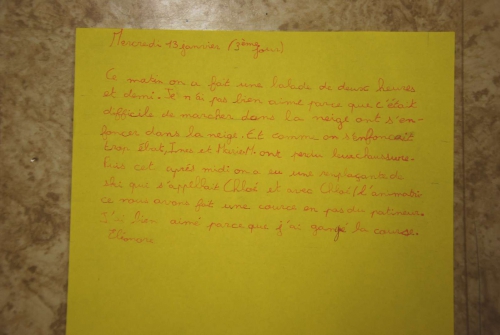 Mercredi 13 janvier (3ème jour)
Ce matin on a fait une balade de deux heures
et demi. Je n'ai pas bien aimé parce que c'était
difficile de marcher dans la neige ont s'en-
foncer dans la neige. Et comme on s'enfoncait
trop Ines et ont perdu
Puis cet après midi on a eu une remplaçante de
ski qui s'appellait Chloé et avec Chloé (l'animatri
ce nous avons fait une course en pas du patineur.
J'ai bien aimé parce que j'ai gangé la course.
Eléonore